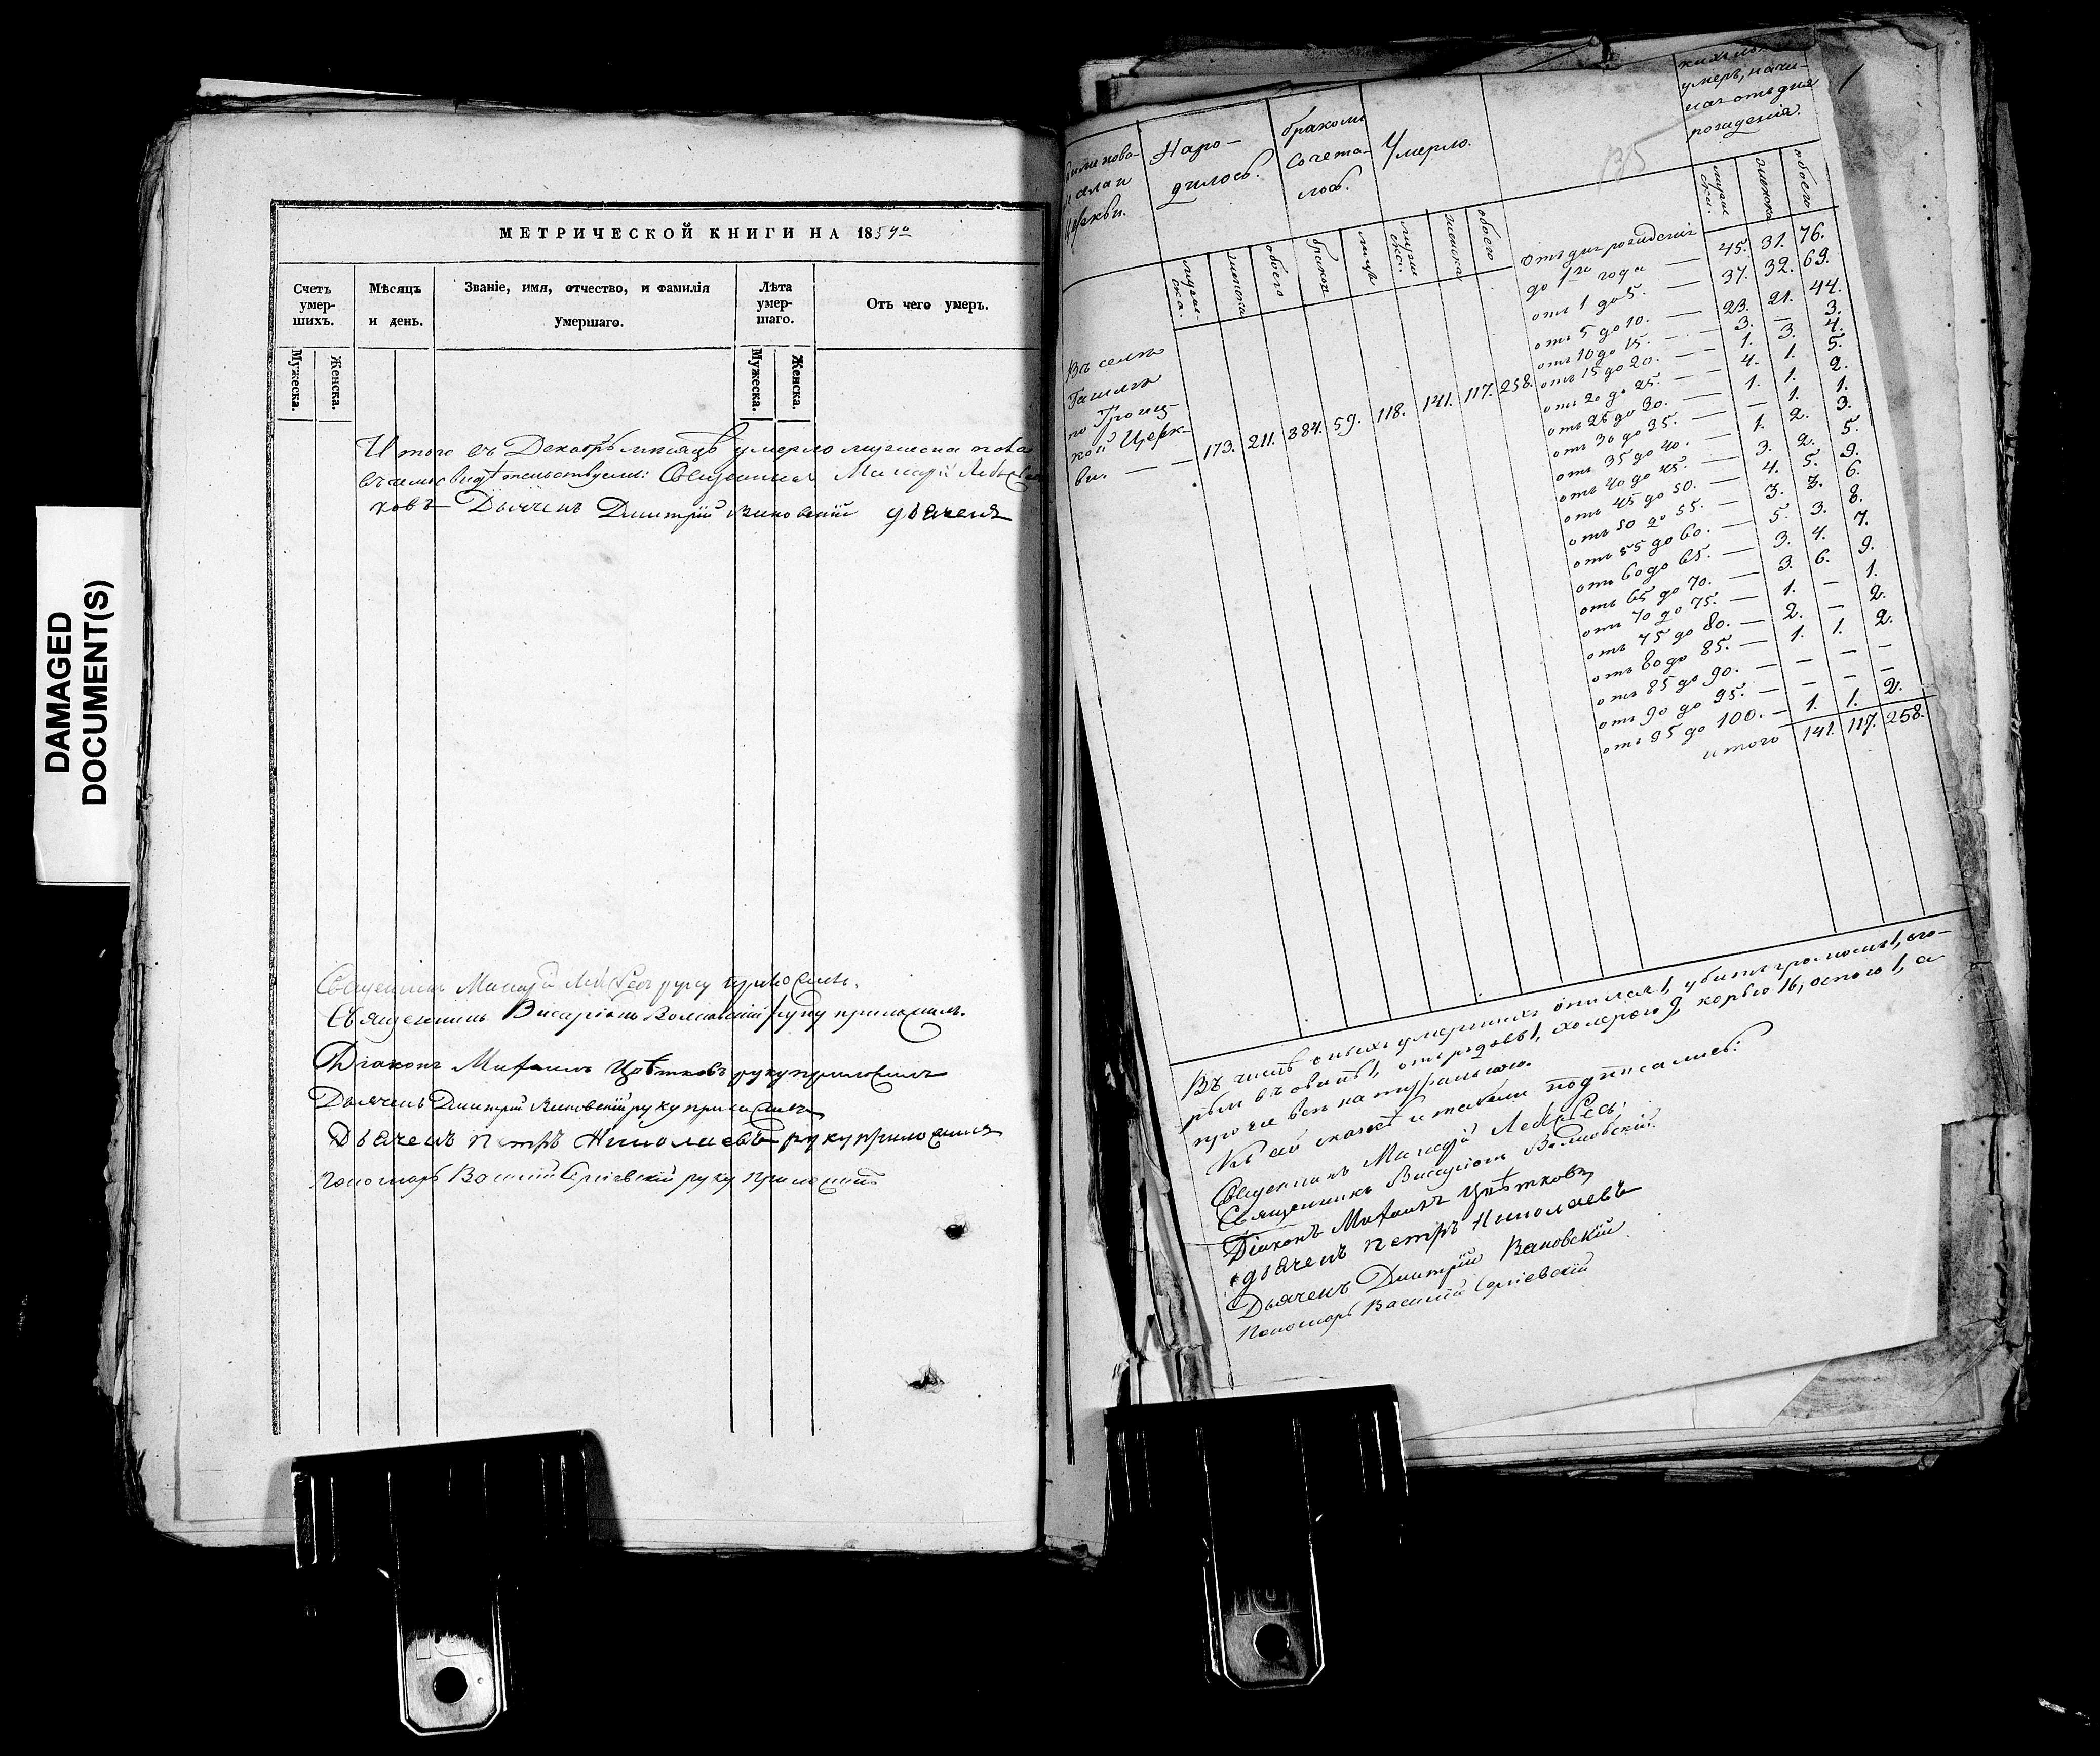 DAMAGED
DOCUMENT(S)
МЕТРИЧЕСКОЙ КНИГИ НА 1854й
Счетъ умер-шихъ.
Мѣсяцъ и день.
Званіе, имя, отчество, и фамилія умершаго.
Лѣта умер-шаго.
Отъ чего умеръ.
Мужеска.
Женска.
Мужеска.
Женска.
Итого въ Декабрѣ мѣсяцѣ умерло
свидѣтельствуемъ: Священникъ
Дьячекъ Дмитрій дьячекъ
Священникъ руку приложилъ.
Священникъ Висаріонъ руку приложилъ.
Діаконъ Михаилъ Цвѣтковъ руку приложилъ
Дьячекъ Дмитрій руку приложилъ
Дьячекъ Петръ Николаевъ руку приложилъ
Пономарь Василій Сергіевскій руку приложилъ
села и
Церкви.
Наро-
дилось.
бракомъ
сочета-
лось.
Умерло.
умеръ, начи-
ная отъ дня
рожденія.
135
мужеска.
женска
обоего
браков
лицъ
мужеска.
женска
обоего
мужеска.
женска
обоего
Въ селѣ
Троиц-
кой Церк-
ви. — — 173. 211. 384. 59. 118. 141. 117. 258.
Отъ дня рожденія
до 1го года — 45. 31. 76.
отъ 1 до 5. — 37. 32. 69.
отъ 5 до 10. — 23. 21. 44.
отъ 10 до 15. — 3. — 3.
отъ 15 до 20. — 1. 3. 4.
отъ 20 до 25. — 4. 1. 5.
отъ 25 до 30. — 1. 1. 2.
отъ 30 до 35. — — 1. 1.
отъ 35 до 40. — 1. 2. 3.
отъ 40 до 45. — 3. 2. 5.
отъ 45 до 50. — 4. 5. 9.
отъ 50 до 55. — 3. 3. 6.
отъ 55 до 60. — 5. 3. 8.
отъ 60 до 65. — 3. 4. 7.
отъ 65 до 70. — 3. 6. 9.
отъ 70 до 75. — 1. — 1.
отъ 75 до 80. — 2. — 2.
отъ 80 до 85. — 1. 1. 2.
отъ 85 до 90. — — — —
отъ 90 до 95. — — — —
отъ 95 до 100. — 1. 1. 2.
итого 141. 117. 258.
Въ числѣ оныхъ умершихъ опился 1, убитъ громомъ 1,
отъ родовъ 1, холерою 9, корью 16, оспою 1, а
прочіе всѣ натурально.
подписались:
Священникъ
Священникъ Висаріонъ
Діаконъ Михаилъ Цвѣтковъ,
дьячекъ Петръ Николаевъ
Дьячекъ Дмитрій
Пономарь Василій Сергіевскій